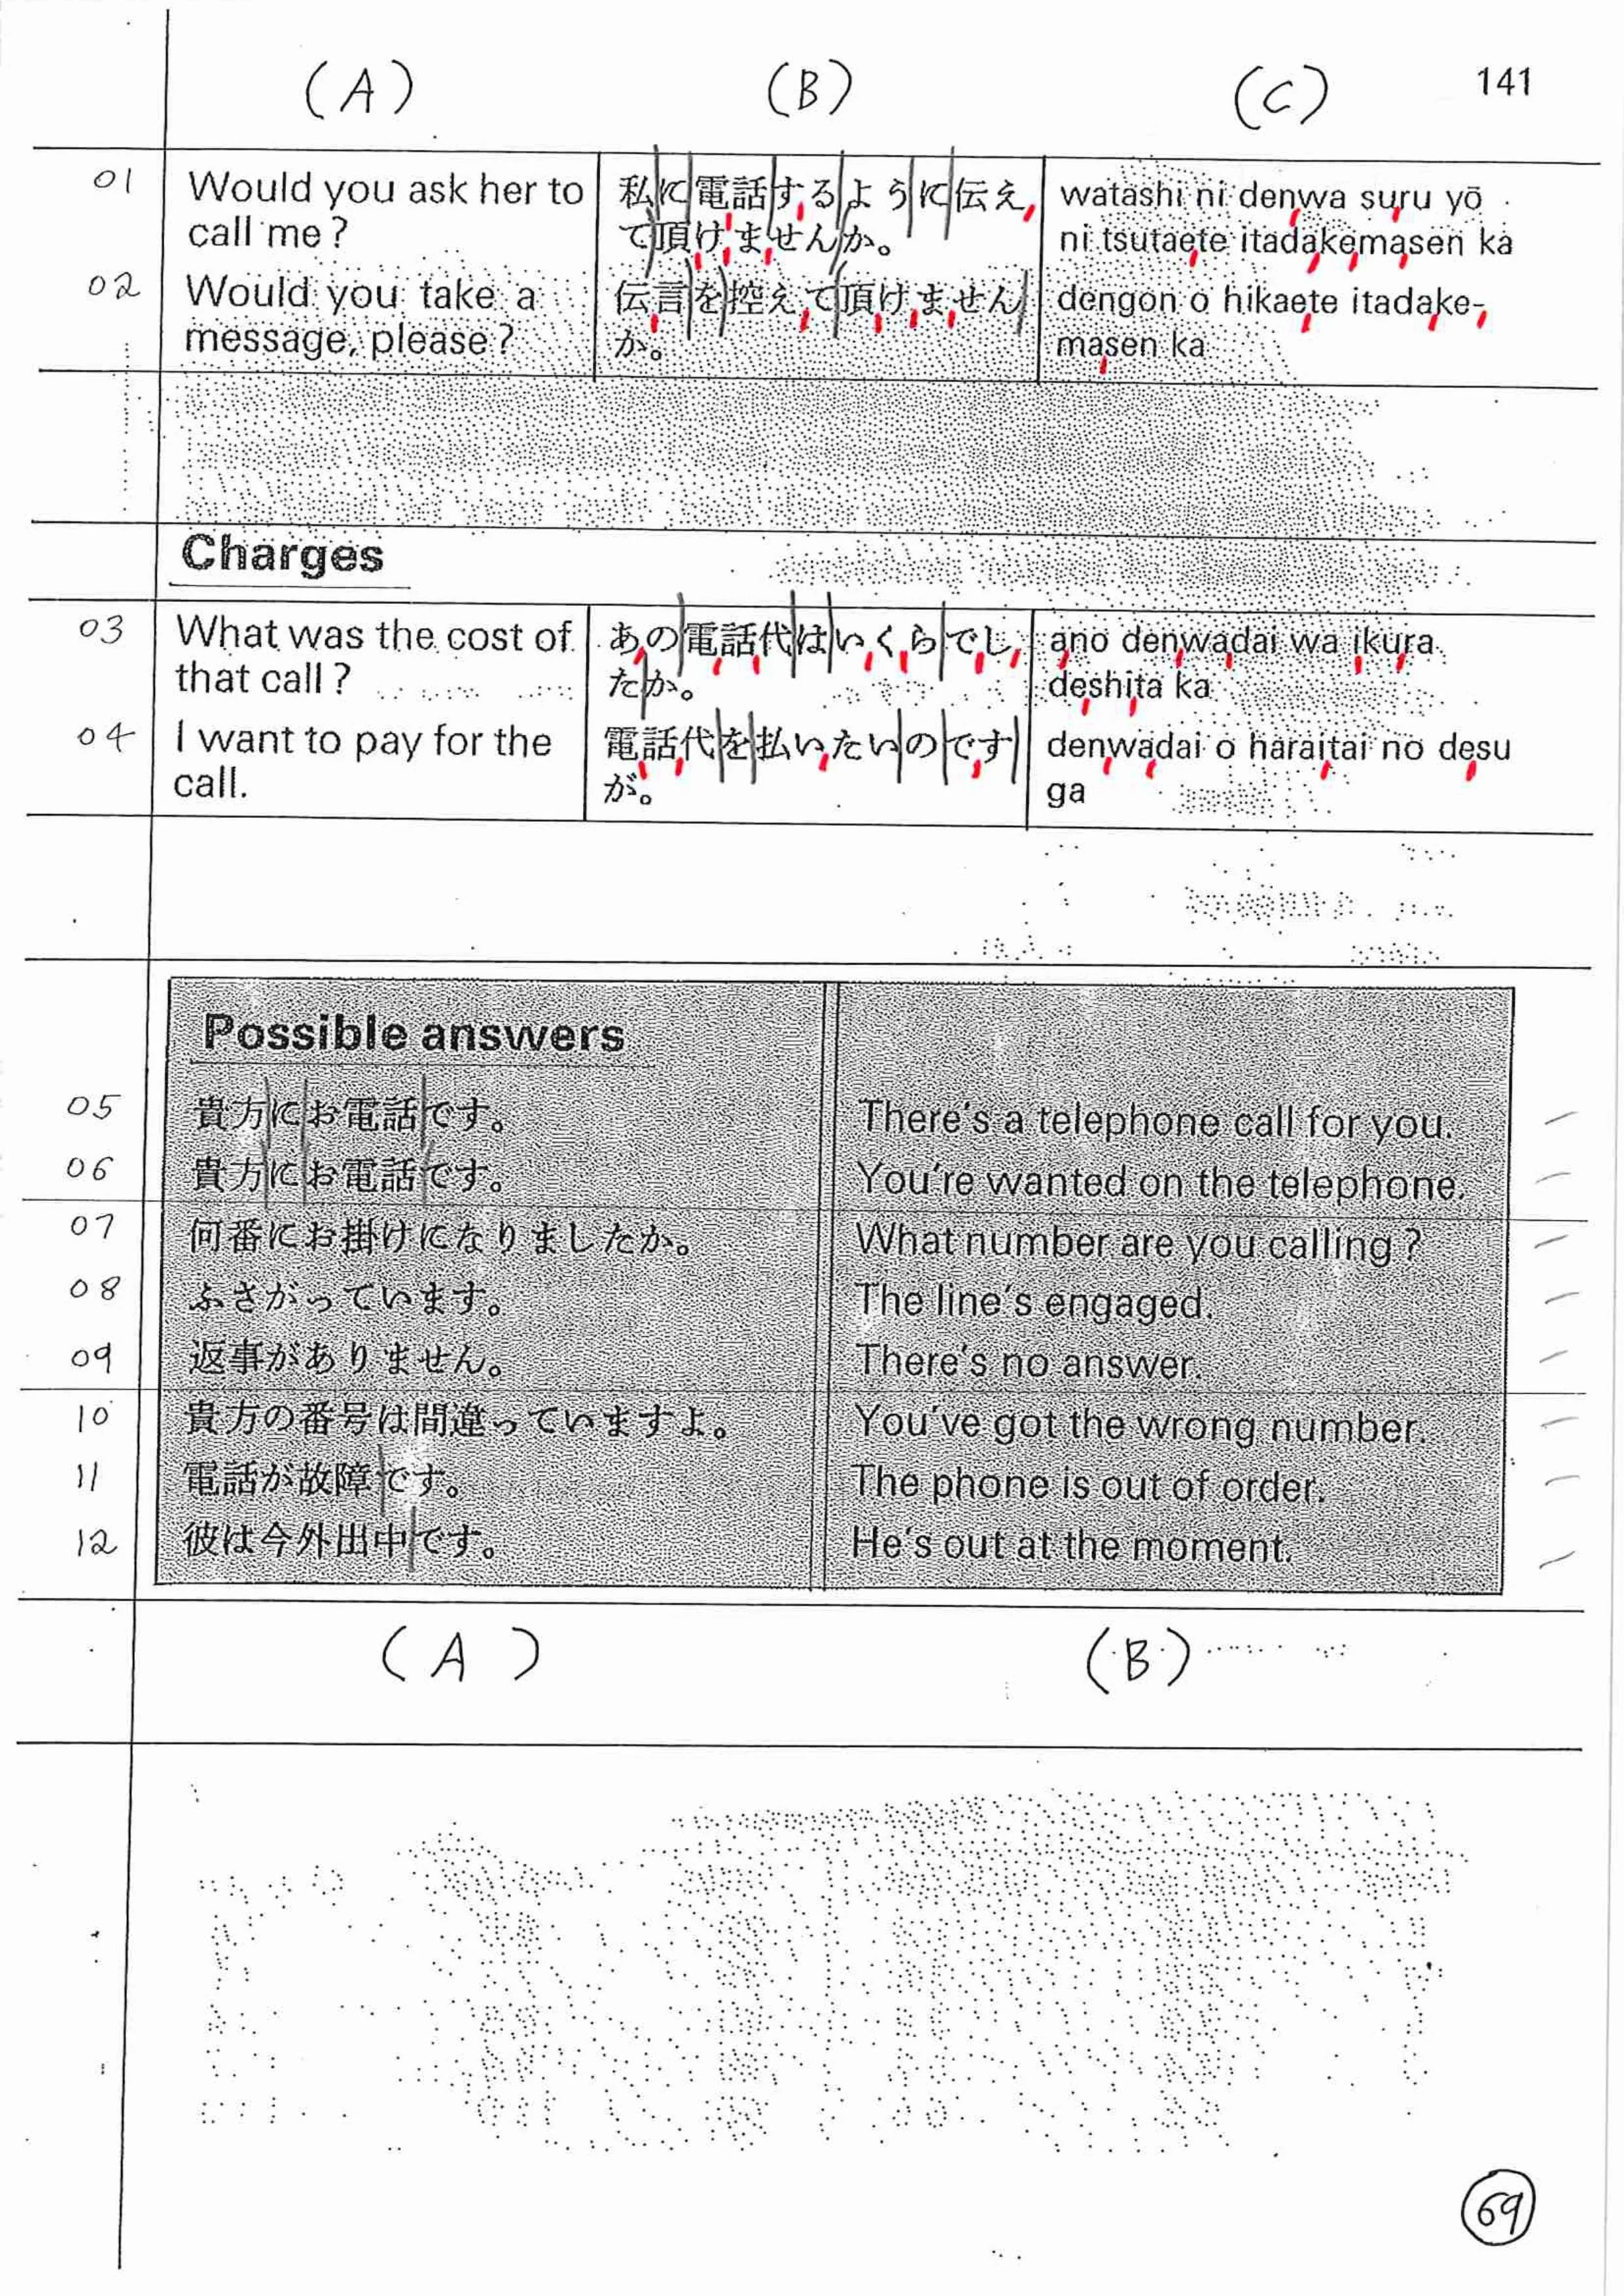 (A) (B) (C) 141
01 Would you ask her to 私に電話するように伝え watashi ni denwa suru yō
call me? て頂けませんか。 ni tsutaete itadakemasen ka
02 Would you take a 伝言を控えて頂けません dengon o hikaete itadake-
message, please? か。 masen ka
Charges
03 What was the cost of あの電話代はいくらでし ano denwadai wa ikura
that call? たか。 deshita ka
04 I want to pay for the 電話代を払いたいのです denwadai o haraitai no desu
call. が。 ga
Possible answers
05 貴方にお電話です。 There's a telephone call for you.
06 貴方にお電話です。 You're wanted on the telephone.
07 何番にお掛けになりましたか。 What number are you calling?
08 ふさがっています。 The line's engaged.
09 返事がありません。 There's no answer.
10 貴方の番号は間違っていますよ。 You've got the wrong number.
11 電話が故障です。 The phone is out of order.
12 彼は今外出中です。 He's out at the moment.
(A) (B)
69